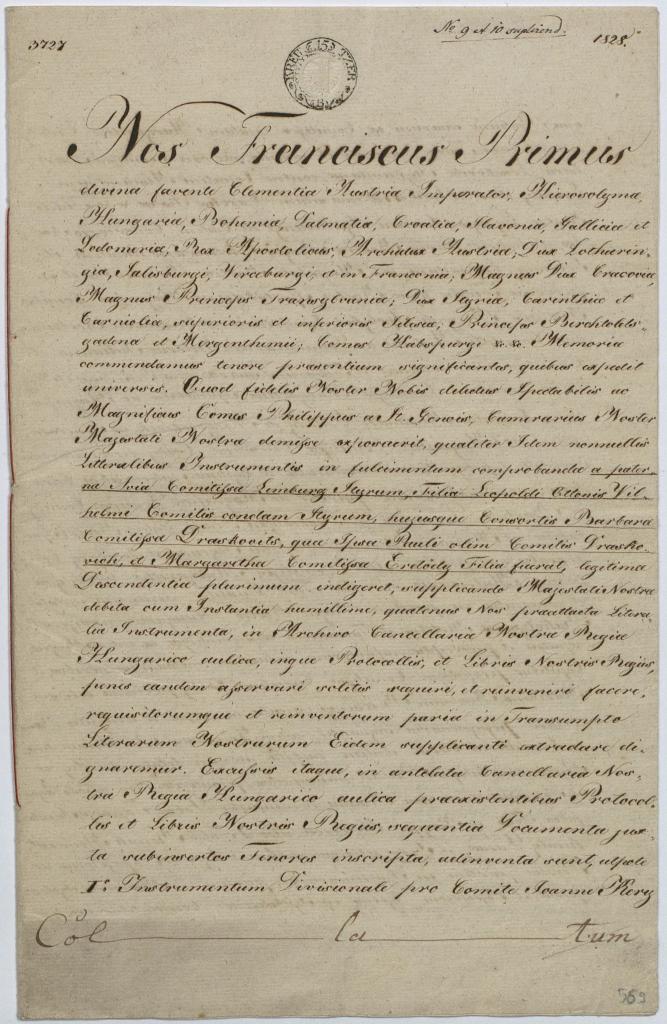 3727
No 9 et 10 suplirend.
1828.
KREU 15 TZER
Nos Franciscus Primus
divina favente Clementia Austriæ Imperator, Hierosolymæ,
Hungariæ, Bohemiæ, Dalmatiæ, Croatiæ, Slavoniæ, Galliciæ et
Lodomeriæ, Rex Apostolicus, Archidux Austriæ, Dux Lotharin-
giæ, Salisburgi, Virceburgi, et in Franconia, Magnus Dux Cracoviæ,
Magnus Princeps Transylvaniæ; Dux Styriæ, Carinthiæ et
Carnioliæ, superioris et inferioris Silesiæ; Princeps Berchtolds-
gadenæ et Mergenthemii; Comes Habspurgi &c. &c. Memoriæ
commendamus tenore præsentium significantes, quibus expedit
universis. Quod fidelis Noster Nobis dilectus Spectabilis ac
Magnificus Comes Philippus a St. Genois, Camerarius Noster
Majestati Nostræ demisse exposuerit, qualiter Idem nonnullis
Litteralibus Instrumentis in fulcimentum comprobandæ a pater-
na Avia Comitissa Leinburg Styrum, Filia Leopoldi Ottonis Vil-
helmi Comitis condam Styrum, hujusque Consortis Barbara
Comitissa Draskovits, quæ Ipsa Pauli olim Comitis Drasko-
vich, et Margaretha Comitissa Erdödy Filia fuerit, legitima
Descendentia plurimum indigeret, supplicando Majestati Nostræ
debita cum Instantia humillime, quatenus Nos præattacta Litera-
lia Instrumenta, in Archivo Cancellariæ Nostræ Regiæ
Hungarico aulicæ, inque Protocollis, et Libris Nostris Regiis,
penes eandem asservari solitis requiri, et reinveniri facere,
requisitorumque et reinventorum paria in Transumpto
Literarum Nostrarum Eidem supplicanti extradare di-
gnaremur. Excussis itaque, in antelata Cancellaria Nos-
tra Regia Hungarico aulica præexistentibus Protocol-
lis et Libris Nostris Regiis, sequentia Documenta jux-
ta subinsertos Tenores inscripta, adinventa sunt, utpote
I.o Instrumentum Divisionale pro Comite Joanne Kery
Col la tum
569